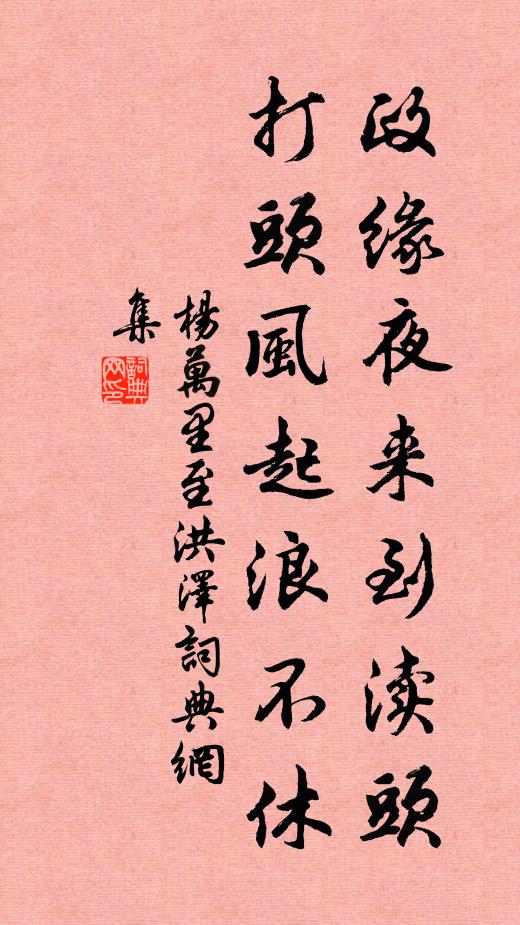 政缘夜来到渎頭
打頭風起浪不休
楊萬里至洪澤詞典網
集
詞典
网印